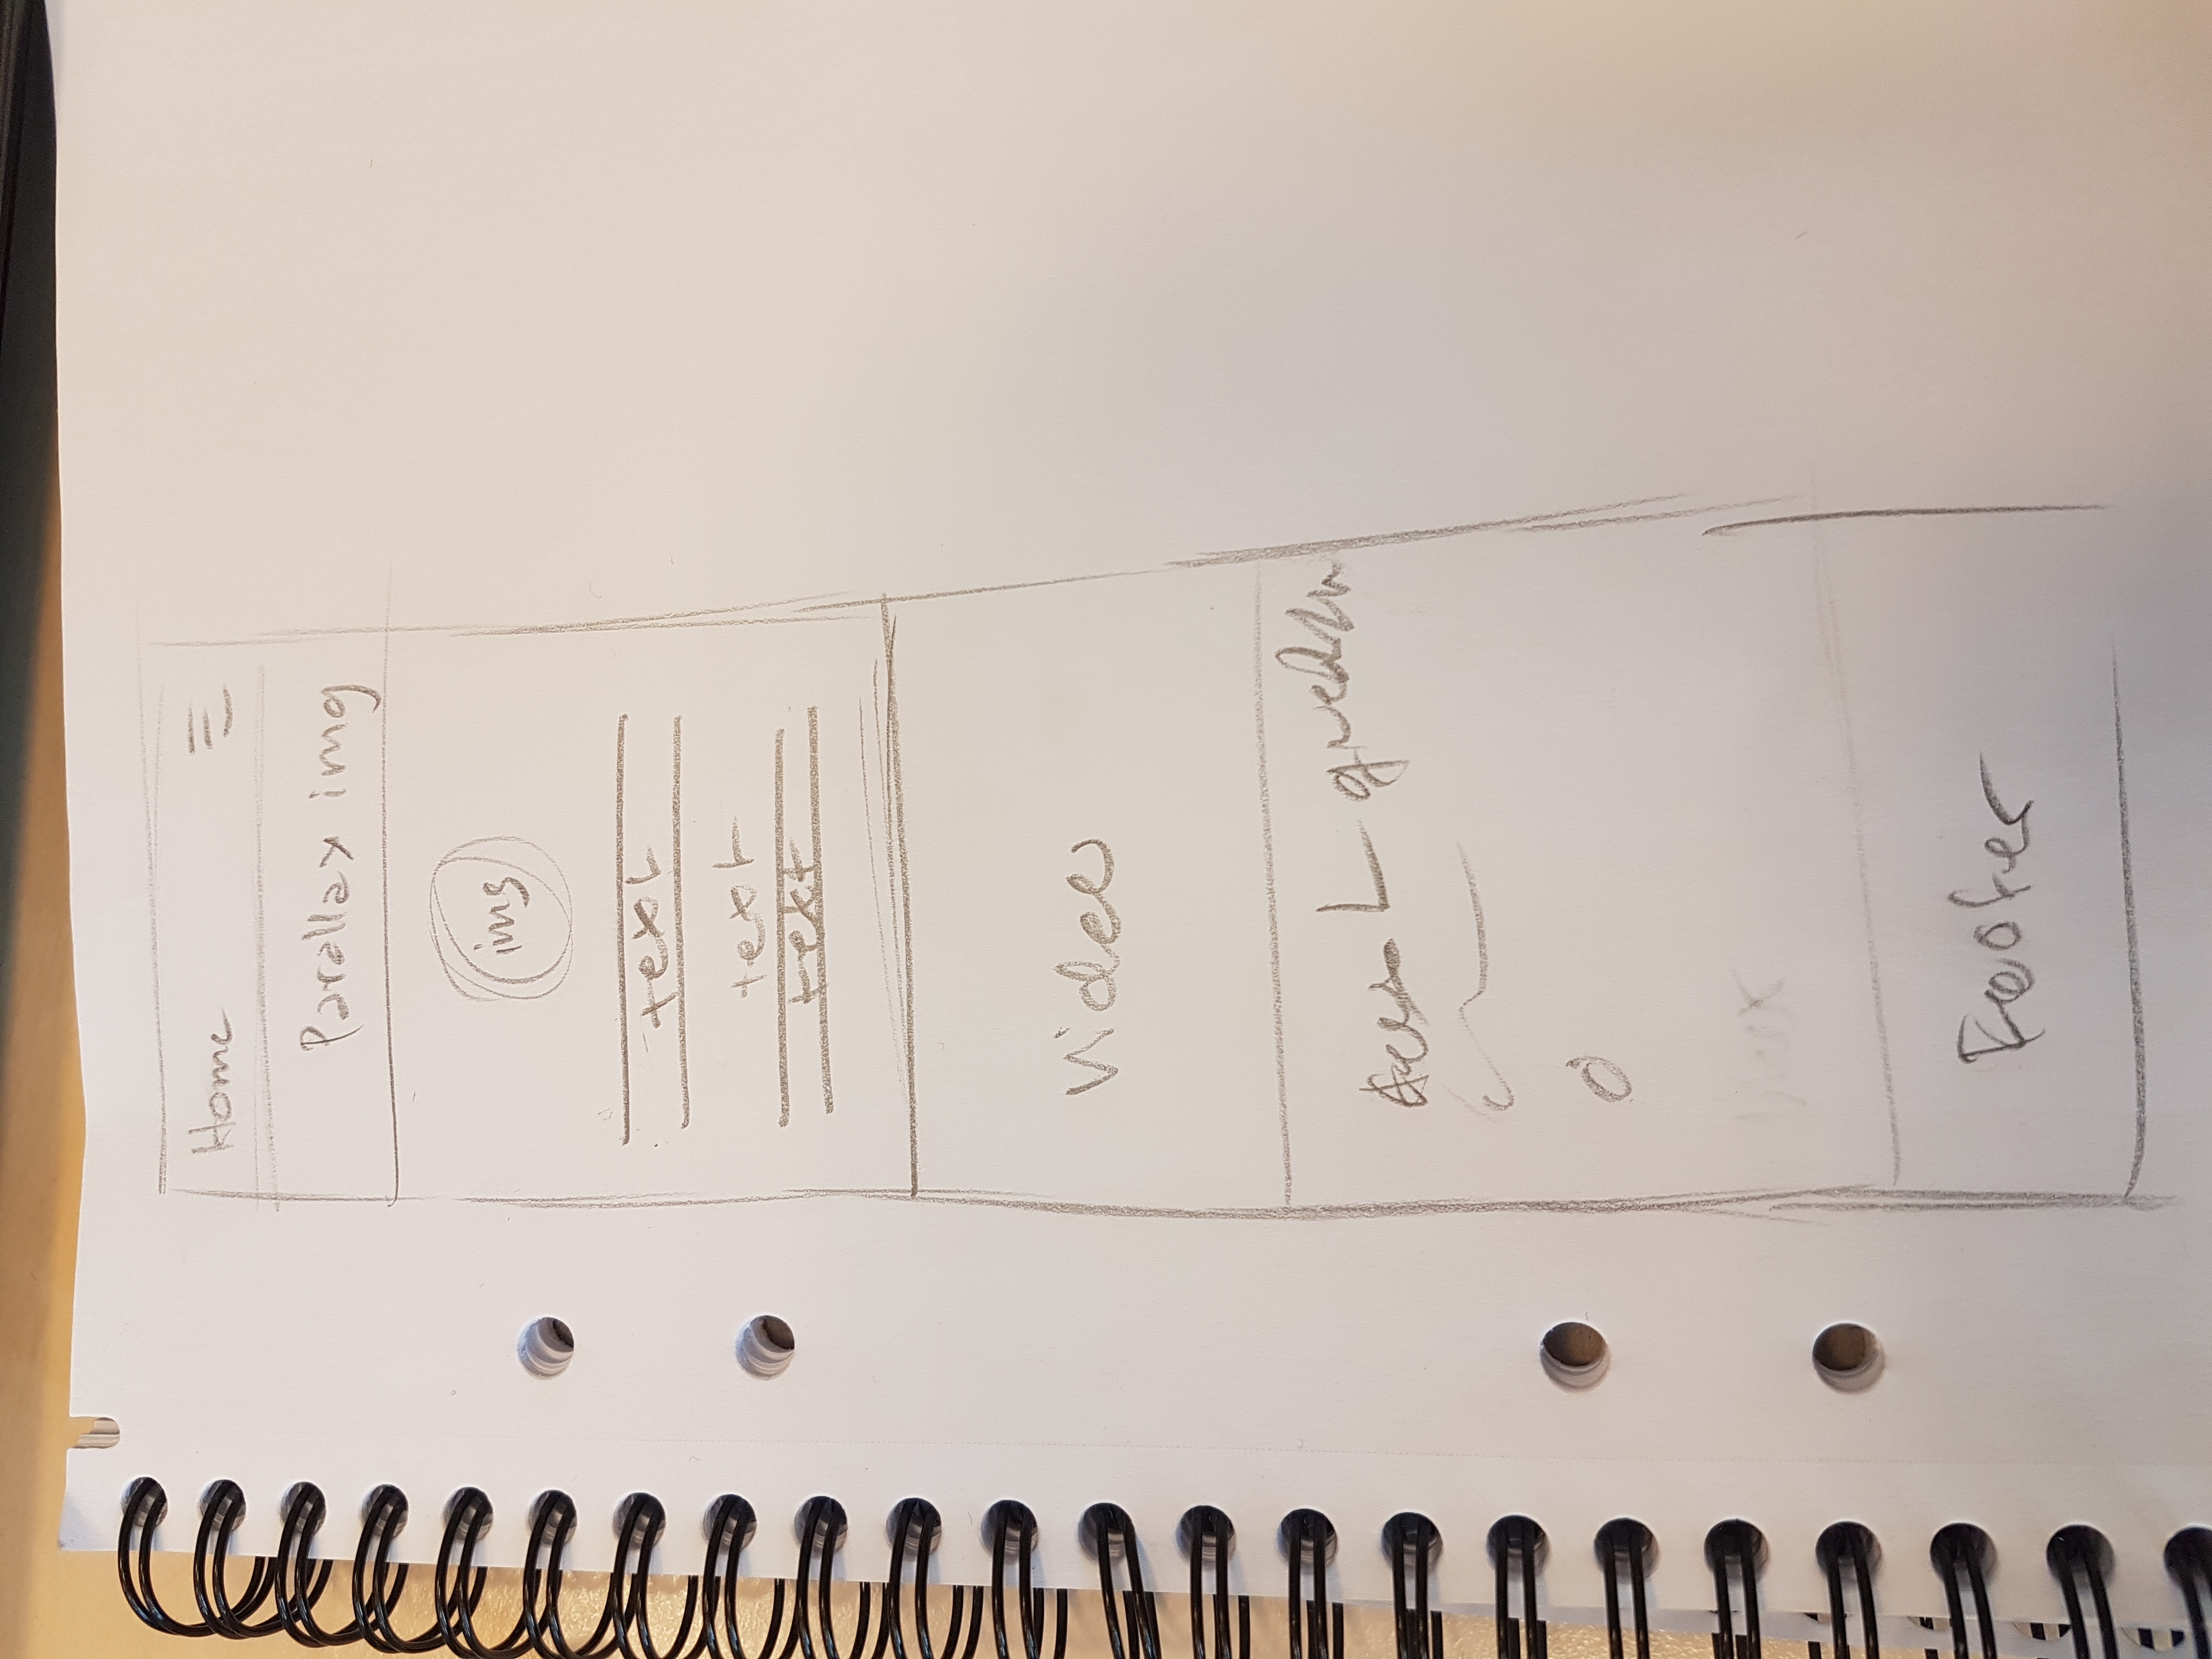 Home
Parallax img
img
text
text
text
Video
Footer